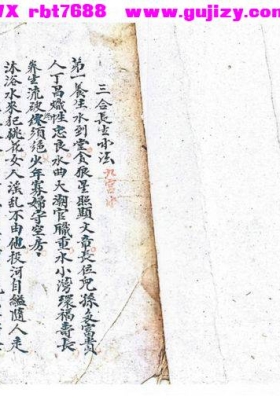 VX rbt7688   www.gujizy.com
三合長生水法 九宫水
第一養生水到堂貪狼星照顯文章長位兒孫多富貴
人丁昌熾性忠良水曲大潮官職重水小灣環福壽長
养生流破殀須絕少年寡婦守空房
沐浴水來犯桃花女人淫乱不由他投河自縊隨人走